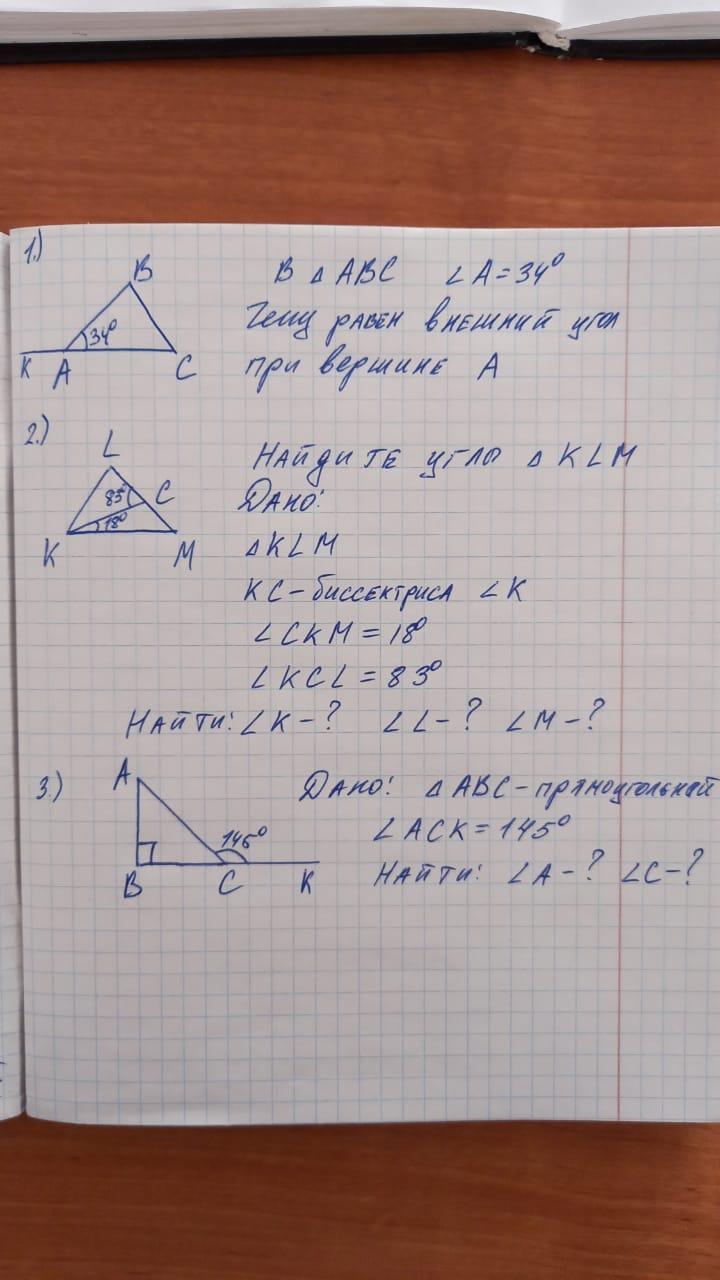 1.)
B
34°
K A C
В △ ABC ∠A = 34°
Чему равен внешний угол
при вершине А
2.)
L
83° C
18°
K M
Найдите углы △ KLM
Дано:
△KLM
KC - биссектриса ∠K
∠CKM = 18°
∠KCL = 83°
Найти: ∠K - ? ∠L - ? ∠M - ?
3.)
A
145°
B C K
Дано: △ABC - прямоугольный
∠ACK = 145°
Найти: ∠A - ? ∠C - ?